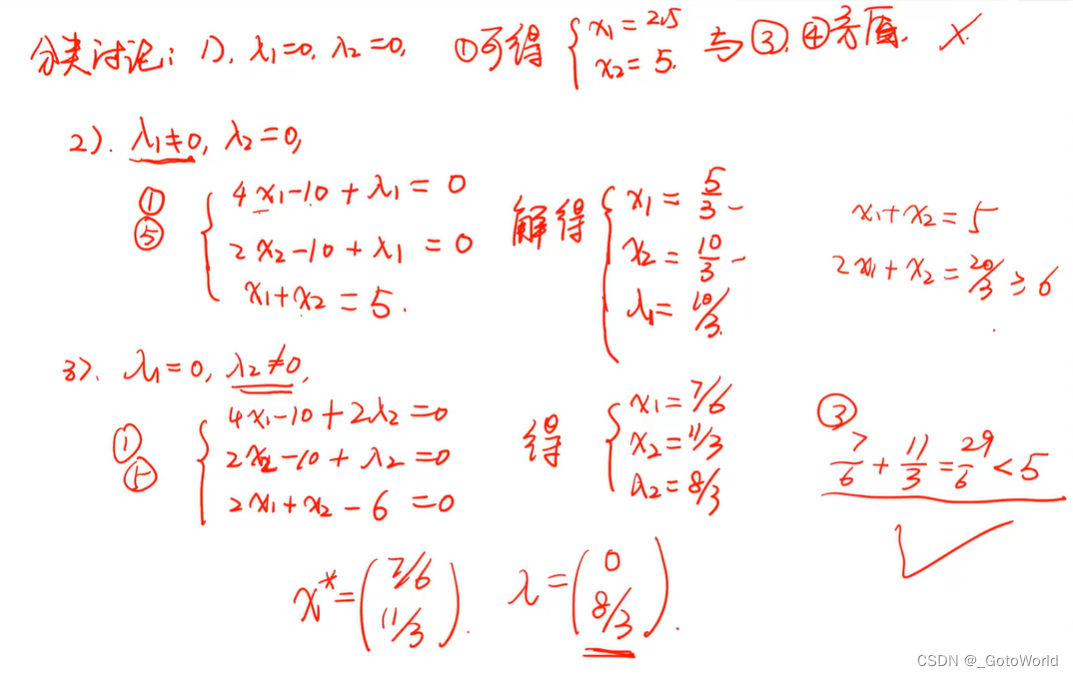 分类讨论: 1). λ₁=0, λ₂=0, ①可得 { x₁=2.5 x₂=5. 与③,④矛盾. ×
2). λ₁≠0, λ₂=0,
① ⑤ { 4x₁-10+λ₁=0
2x₂-10+λ₁=0
x₁+x₂=5.
解得 { x₁=5/3
x₂=10/3
λ₁=10/3.
x₁+x₂=5
2x₁+x₂=20/3≥6
3). λ₁=0, λ₂≠0,
① ⑤ { 4x₁-10+2λ₂=0
2x₂-10+λ₂=0
2x₁+x₂-6=0
得 { x₁=7/6
x₂=11/3
λ₂=8/3
③
7/6+11/3=29/6<5
✓
x*=(7/6 11/3). λ=(0 8/3).
CSDN @_GotoWorld